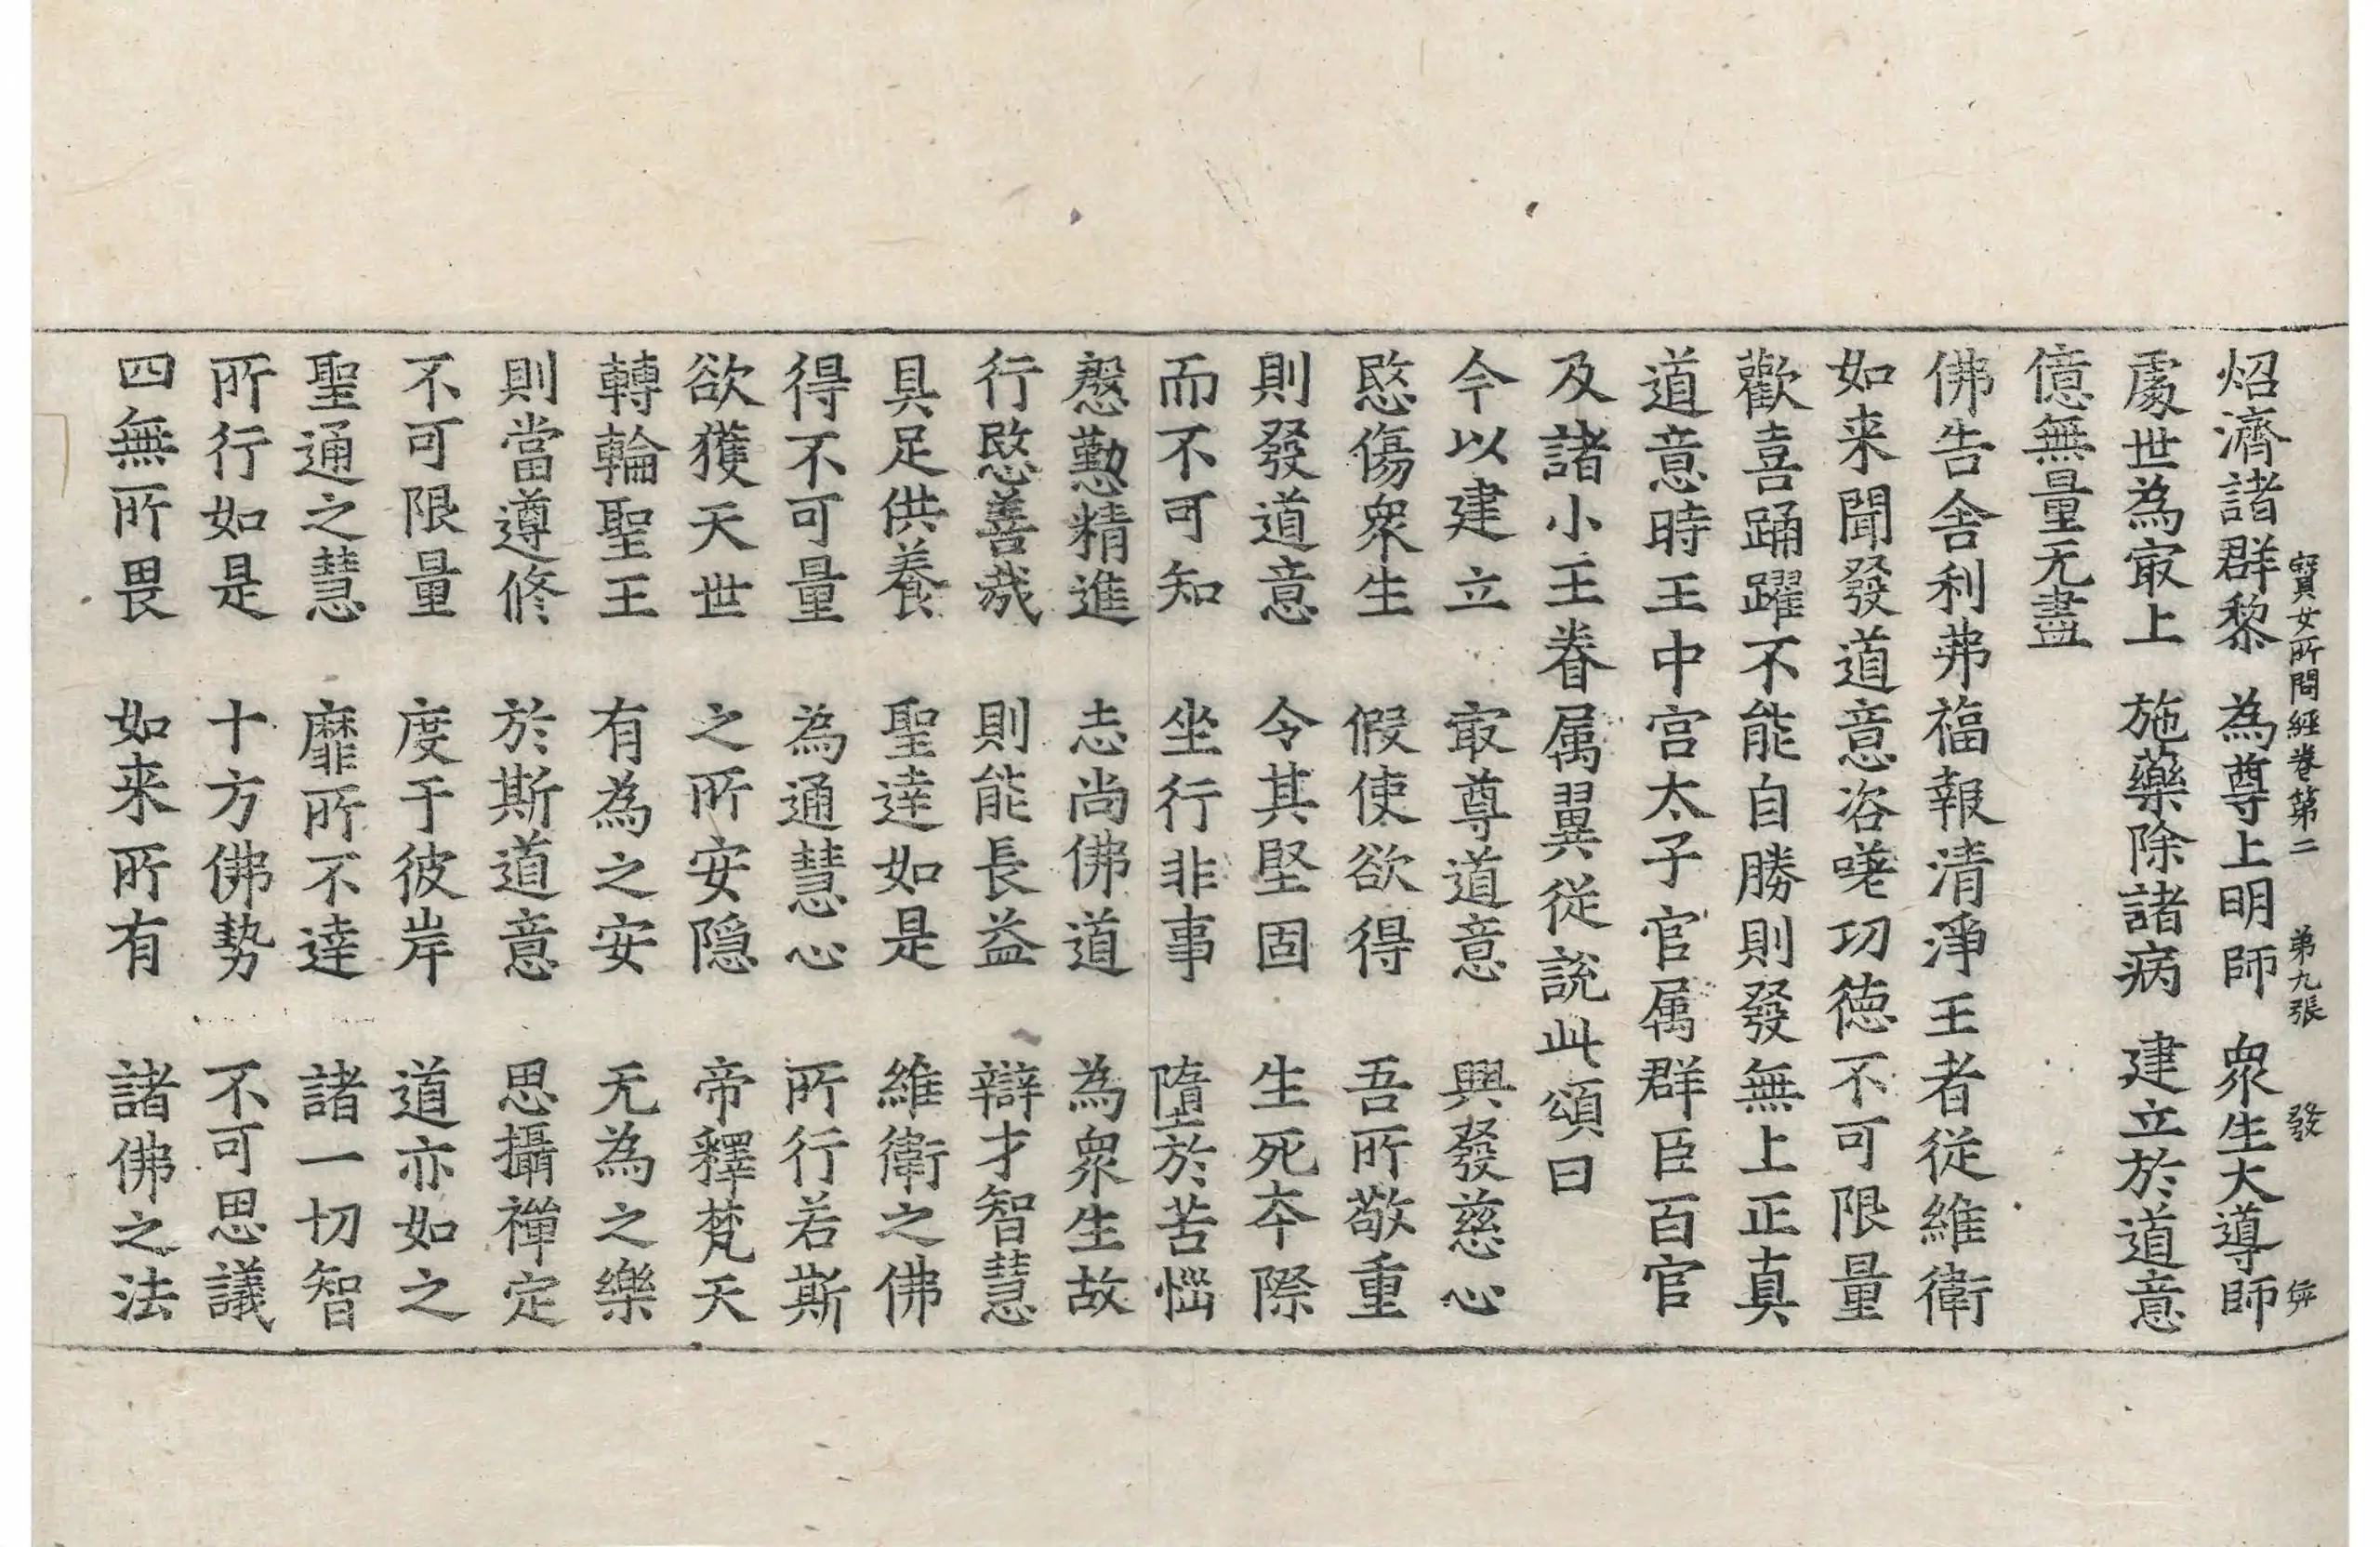 寳女所問經卷第二　弟九張　發
炤濟諸群黎　為尊上明師　衆生大導師
處世為㝡上　施藥除諸病　建立於道意
億無量无盡
佛告舍利弗福報清淨王者從維衛
如来聞發道意咨嗟功德不可限量
歡喜踊躍不能自勝則發無上正真
道意時王中宫太子官属群臣百官
及諸小王眷属翼從說此頌曰
今以建立　㝡尊道意　興發慈心
愍傷衆生　假使欲得　吾所敬重
則發道意　令其堅固　生死夲際
而不可知　坐行非事　墮於苦惱
慇懃精進　志尚佛道　為衆生故
行愍善哉　則能長益　辯才智慧
具足供養　聖達如是　維衛之佛
得不可量　為通慧心　所行若斯
欲獲天世　之所安隱　帝釋梵天
轉輪聖王　有為之安　无為之樂
則當遵修　於斯道意　思攝禪定
不可限量　度于彼岸　道亦如之
聖通之慧　靡所不達　諸一切智
所行如是　十方佛勢　不可思議
四無所畏　如来所有　諸佛之法